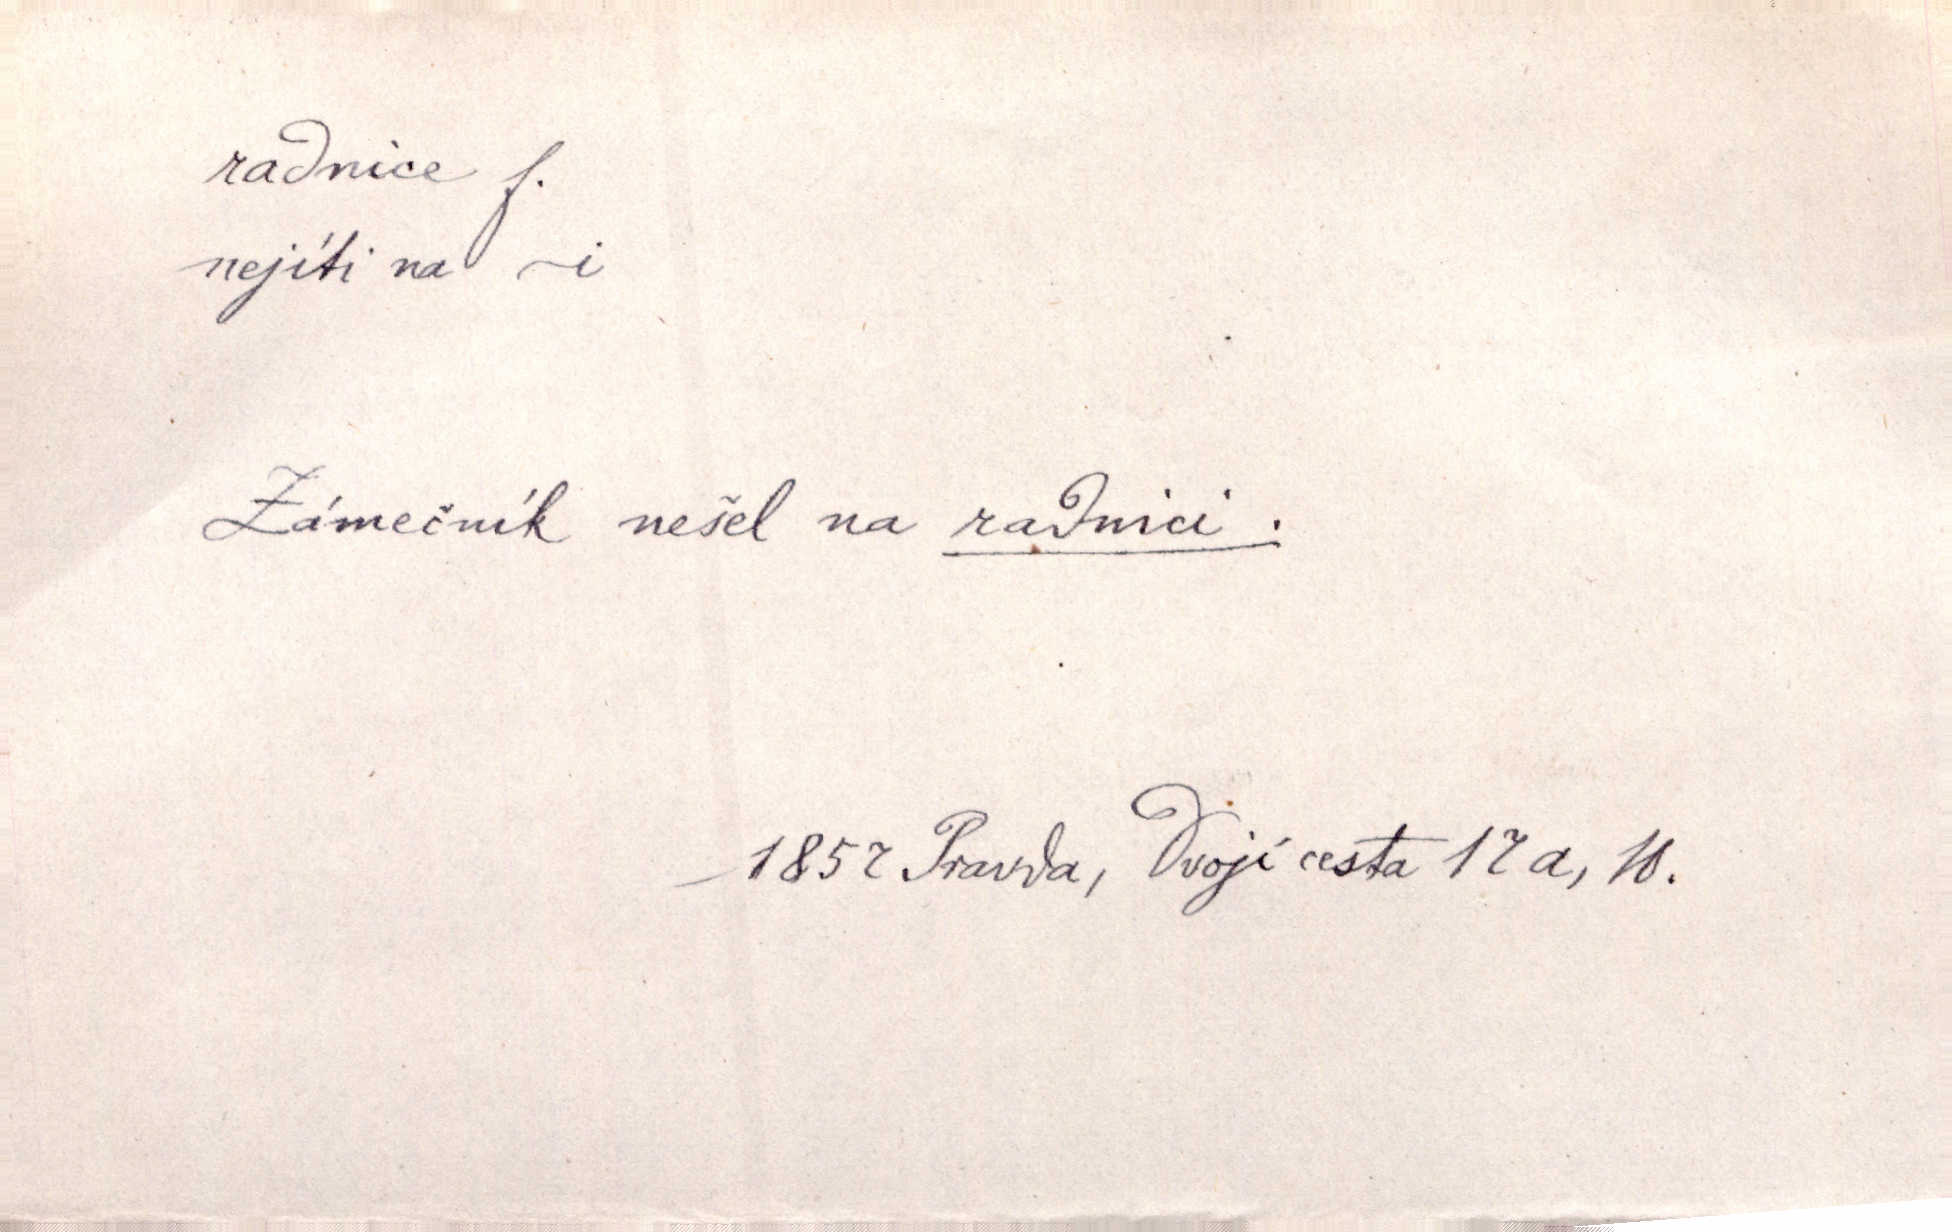 radnice f.
nejíti na ~i
Zámečník nešel na radnici.
1857 Pravda, Dvojí cesta 17a, 10.